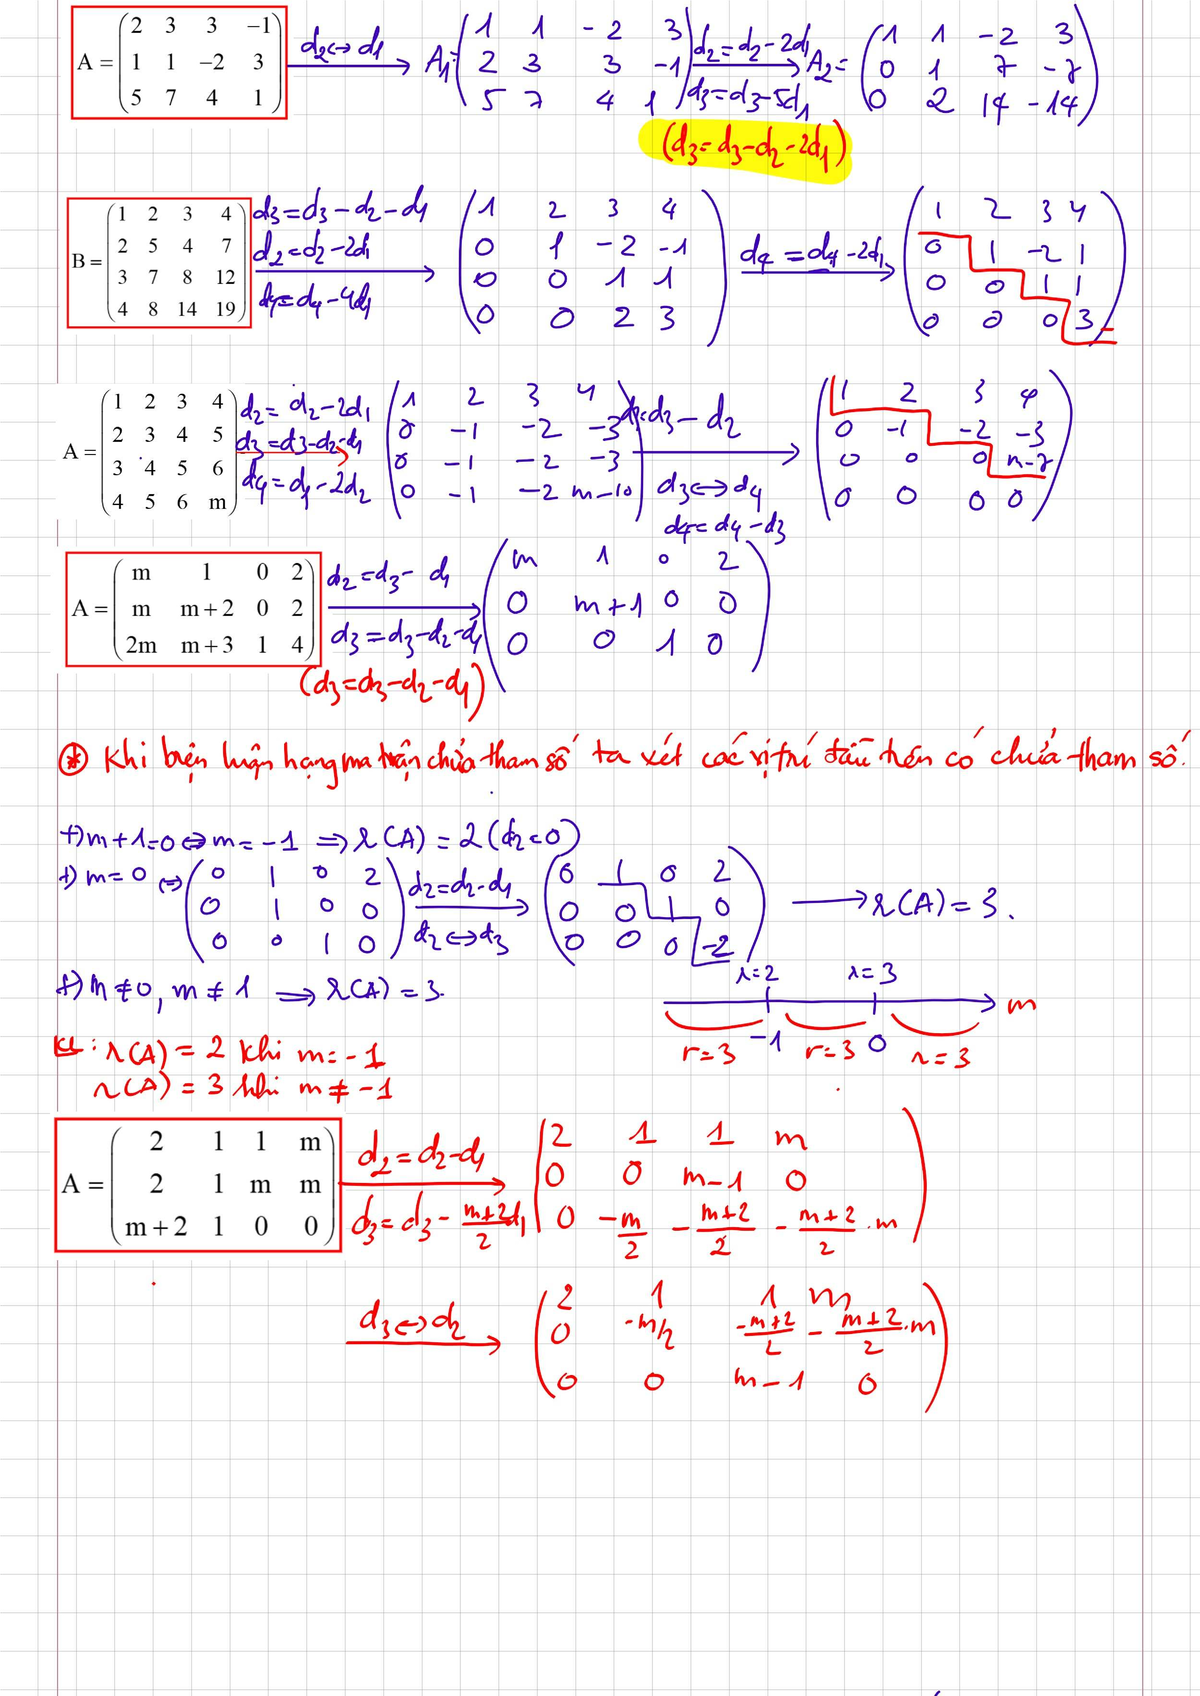 A = (2 3 3 −1; 1 1 −2 3; 5 7 4 1) d2↔d1 → A1 = (1 1 -2 3; 2 3 3 -1; 5 7 4 1) d2=d2-2d1 → d3=d3-5d1 A2 = (1 1 -2 3; 0 1 7 -7; 0 2 14 -14)
(d3=d3-d2-2d1)
B = (1 2 3 4; 2 5 4 7; 3 7 8 12; 4 8 14 19) d3=d3-d2-d1 d2=d2-2d1 → d4=d4-4d1 (1 2 3 4; 0 1 -2 -1; 0 0 1 1; 0 0 2 3) d4=d4-2d1 → (1 2 3 4; 0 1 -2 1; 0 0 1 1; 0 0 0 3)
A = (1 2 3 4; 2 3 4 5; 3 4 5 6; 4 5 6 m) d2=d2-2d1 d3=d3-d2-d1 → d4=d4-2d2 (1 2 3 4; 0 -1 -2 -3; 0 -1 -2 -3; 0 -1 -2 m-10) d3=d3-d2 → d3↔d4 (1 2 3 4; 0 -1 -2 -3; 0 0 0 m-7; 0 0 0 0)
d4=d4-d3
A = (m 1 0 2; m m+2 0 2; 2m m+3 1 4) d2=d3-d1 → d3=d3-d2-d1 (m 1 0 2; 0 m+1 0 0; 0 0 1 0)
(d3=d3-d2-d1)
⊛ Khi biện luận hạng ma trận chứa tham số ta xét các vị trí đầu tiên có chứa tham số.
+) m+1=0 ⇔ m=-1 ⇒ r(A)=2 (d2=0)
+) m=0 ⇔ (0 1 0 2; 0 1 0 0; 0 0 1 0) d2=d2-d1 → d2↔d3 (0 1 0 2; 0 0 1 0; 0 0 0 -2) → r(A)=3.
+) m≠0, m≠1 ⇒ r(A)=3.
r=2 r=3
m
-1 0
r=3 r=3 r=3
KL: r(A)=2 khi m=-1
r(A)=3 khi m≠-1
A = (2 1 1 m; 2 1 m m; m+2 1 0 0) d2=d2-d1 → d3=d3-m+2/2 d1 (2 1 1 m; 0 0 m-1 0; 0 -m/2 -m+2/2 -m+2/2 .m)
d3↔d2 → (2 1 1 m; 0 -m/2 -m+2/2 -m+2/2 .m; 0 0 m-1 0)